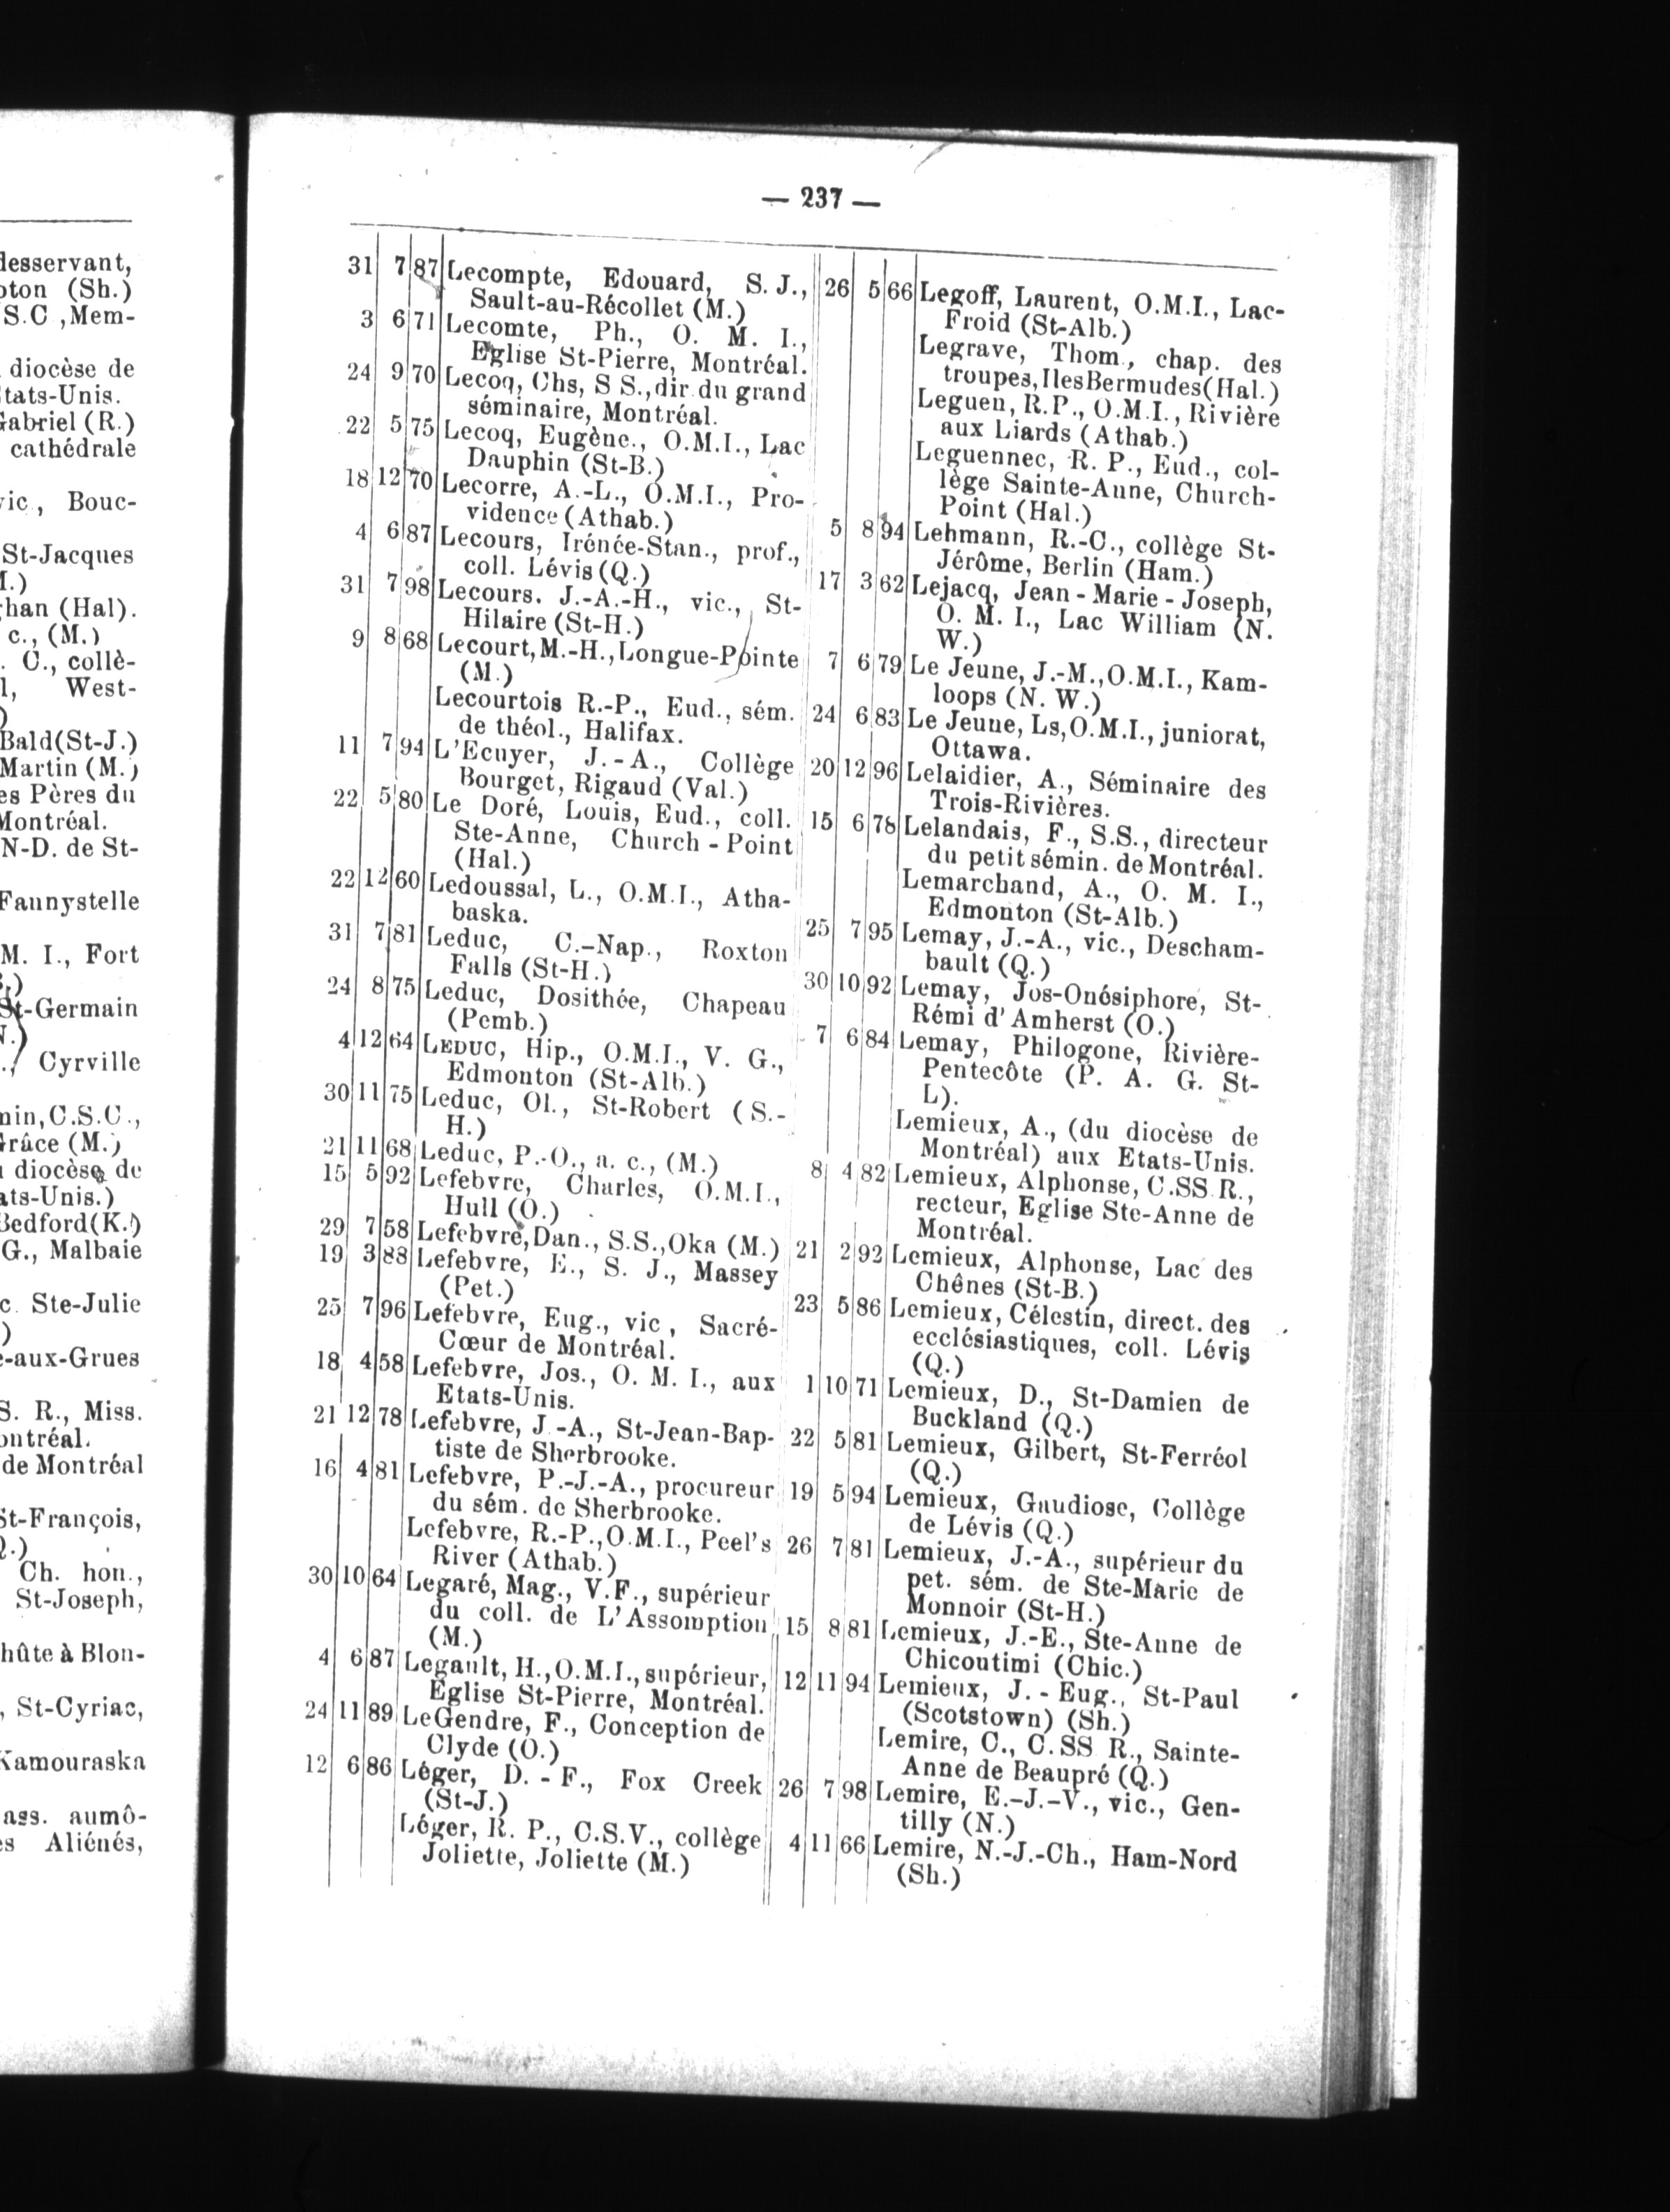 desservant,
pton (Sh.)
S.C ,Mem-
diocèse de
tats-Unis.
Gabriel (R.)
cathédrale
vic, Bouc-
St-Jacques
M.)
ghan (Hal).
c., (M.)
. C., collè-
l, West-
)
Bald(St-J.)
Martin (M.)
es Pères du
Montréal.
N-D. de St-
Fannystelle
M. I., Fort
St-Germain
Cyrville
min,C.S.C.,
Grâce (M.)
diocèse de
ats-Unis.)
Bedford(K.)
G., Malbaie
c. Ste-Julie
)
e-aux-Grues
S. R., Miss.
ontréal.
de Montréal
St-François,
Q.)
Ch. hon.,
St-Joseph,
hûte à Blon-
, St-Cyriac,
Kamouraska
ass. aumô-
es Aliénés,
— 237 —
31 7 87 Lecompte, Edouard, S. J.,
Sault-au-Récollet (M.)
3 6 71 Lecomte, Ph., O. M. I.,
Eglise St-Pierre, Montréal.
24 9 70 Lecoq, Chs, S S., dir. du grand
séminaire, Montréal.
22 5 75 Lecoq, Eugène., O.M.I., Lac
Dauphin (St-B.)
18 12 70 Lecorre, A.-L., O.M.I., Pro-
vidence (Athab.)
4 6 87 Lecours, Irénée-Stan., prof.,
coll. Lévis (Q.)
31 7 98 Lecours. J.-A.-H., vic., St-
Hilaire (St-H.)
9 8 68 Lecourt, M.-H., Longue-Pointe
(M.)
Lecourtois R.-P., Eud., sém.
de théol., Halifax.
11 7 94 L'Ecuyer, J.-A., Collège
Bourget, Rigaud (Val.)
22 5 80 Le Doré, Louis, Eud., coll.
Ste-Anne, Church-Point
(Hal.)
22 12 60 Ledoussal, L., O.M.I., Atha-
baska.
31 7 81 Leduc, C.-Nap., Roxton
Falls (St-H.)
24 8 75 Leduc, Dosithée, Chapeau
(Pemb.)
4 12 64 LEDUC, Hip., O.M.I., V. G.,
Edmonton (St-Alb.)
30 11 75 Leduc, Ol., St-Robert (S.-
H.)
21 11 68 Leduc, P.-O., a. c., (M.)
15 5 92 Lefebvre, Charles, O.M.I.,
Hull (O.)
29 7 58 Lefebvre, Dan., S.S., Oka (M.)
19 3 88 Lefebvre, E., S. J., Massey
(Pet.)
25 7 96 Lefebvre, Eug., vic , Sacré-
Cœur de Montréal.
18 4 58 Lefebvre, Jos., O. M. I., aux
Etats-Unis.
21 12 78 Lefebvre, J.-A., St-Jean-Bap-
tiste de Sherbrooke.
16 4 81 Lefebvre, P.-J.-A., procureur
du sém. de Sherbrooke.
Lefebvre, R.-P., O.M.I., Peel's
River (Athab.)
30 10 64 Legaré, Mag., V.F., supérieur
du coll. de L'Assomption
(M.)
4 6 87 Legault, H., O.M.I., supérieur,
Eglise St-Pierre, Montréal.
24 11 89 LeGendre, F., Conception de
Clyde (O.)
12 6 86 Léger, D.-F., Fox Creek
(St-J.)
Léger, R. P., C.S.V., collège
Joliette, Joliette (M.)
26 5 66 Legoff, Laurent, O.M.I., Lac-
Froid (St-Alb.)
Legrave, Thom., chap. des
troupes, Iles Bermudes (Hal.)
Leguen, R.P., O.M.I., Rivière
aux Liards (Athab.)
Leguennec, R. P., Eud., col-
lège Sainte-Anne, Church-
Point (Hal.)
5 8 94 Lehmann, R.-C., collège St-
Jérôme, Berlin (Ham.)
17 3 62 Lejacq, Jean-Marie-Joseph,
O. M. I., Lac William (N.
W.)
7 6 79 Le Jeune, J.-M., O.M.I., Kam-
loops (N. W.)
24 6 83 Le Jeune, Ls, O.M.I., juniorat,
Ottawa.
20 12 96 Lelaidier, A., Séminaire des
Trois-Rivières.
15 6 78 Lelandais, F., S.S., directeur
du petit sémin. de Montréal.
Lemarchand, A., O. M. I.,
Edmonton (St-Alb.)
25 7 95 Lemay, J.-A., vic., Descham-
bault (Q.)
30 10 92 Lemay, Jos-Onésiphore, St-
Rémi d'Amherst (O.)
7 6 84 Lemay, Philogone, Rivière-
Pentecôte (P. A. G. St-
L).
Lemieux, A., (du diocèse de
Montréal) aux Etats-Unis.
8 4 82 Lemieux, Alphonse, C.SS.R.,
recteur, Eglise Ste-Anne de
Montréal.
21 2 92 Lemieux, Alphonse, Lac des
Chênes (St-B.)
23 5 86 Lemieux, Célestin, direct. des
ecclésiastiques, coll. Lévis
(Q.)
1 10 71 Lemieux, D., St-Damien de
Buckland (Q.)
22 5 81 Lemieux, Gilbert, St-Ferréol
(Q.)
19 5 94 Lemieux, Gaudiose, Collège
de Lévis (Q.)
26 7 81 Lemieux, J.-A., supérieur du
pet. sém. de Ste-Marie de
Monnoir (St-H.)
15 8 81 Lemieux, J.-E., Ste-Anne de
Chicoutimi (Chic.)
12 11 94 Lemieux, J.-Eug., St-Paul
(Scotstown) (Sh.)
Lemire, C., C.SS R., Sainte-
Anne de Beaupré (Q.)
26 7 98 Lemire, E.-J.-V., vic., Gen-
tilly (N.)
4 11 66 Lemire, N.-J.-Ch., Ham-Nord
(Sh.)